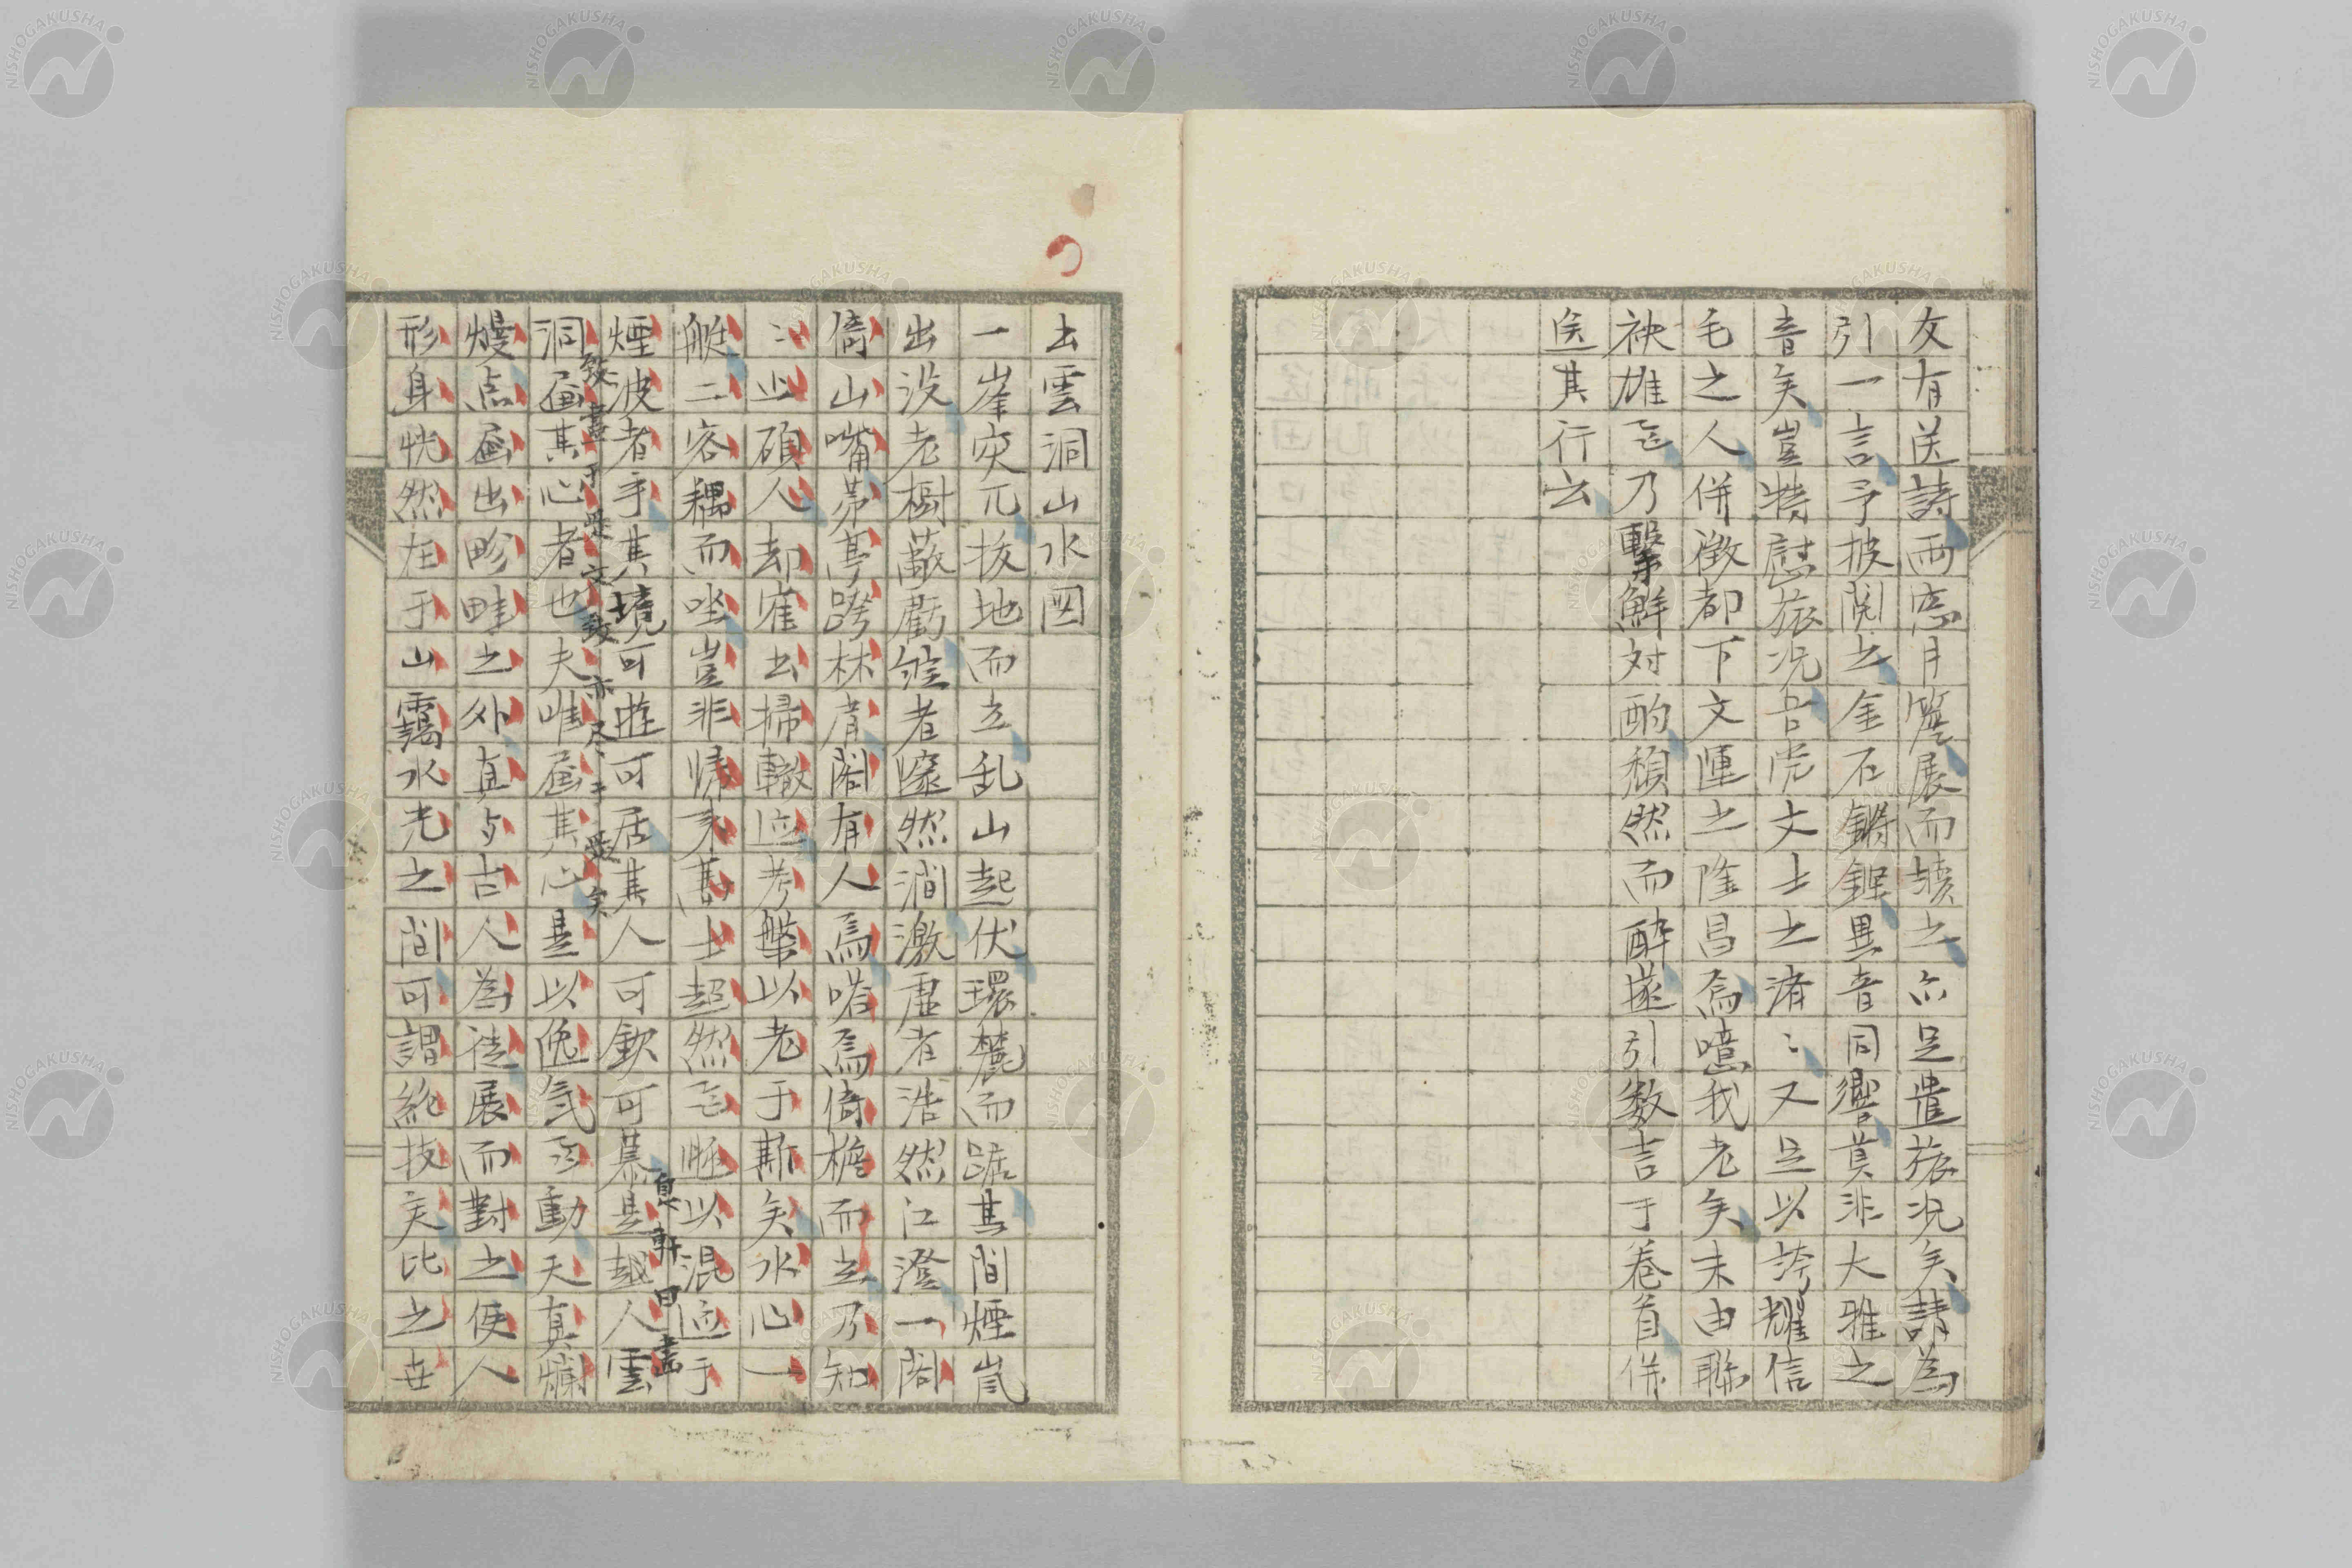 友有送詩而窓月簦展而讀之亦足遣旅况矣請為
引一言予披閱之金石鏘鏗異音同響莫非大雅之
音矣豈特慰旅况吾党文士之濟〻又足以誇耀信
毛之人併徴都下文運之隆昌焉噫我老矣未由聯
袂雄乃擊鮮対酌頽然而酔遂引数言于巻首併
送其行云
出雲洞山水図
一峯突兀抜地而立乱山起伏環麓而踞其間煙嵐
出没老樹蔽虧者窿然澗激虚者浩然江澄一閣
倚山嘴茅亭跨林脊閣有人焉嗒焉倚檐而立乃知
〻此碩人却寉出掃轍迹考槃以老于斯矣水心一
艇二客耦而坐豈非情来高士超然以混迹于
煙波者乎其境可遊可居其人可欽可慕是越人雲
息軒曰畫
致畫于是文致亦尽于是矣
洞画其心者也夫唯画其心是以逸氣動天真爛
熳点画出畛畦之外真与古人為徒展而對之使人
形身恍然在于山靄水光之間可謂絶技矣比之世